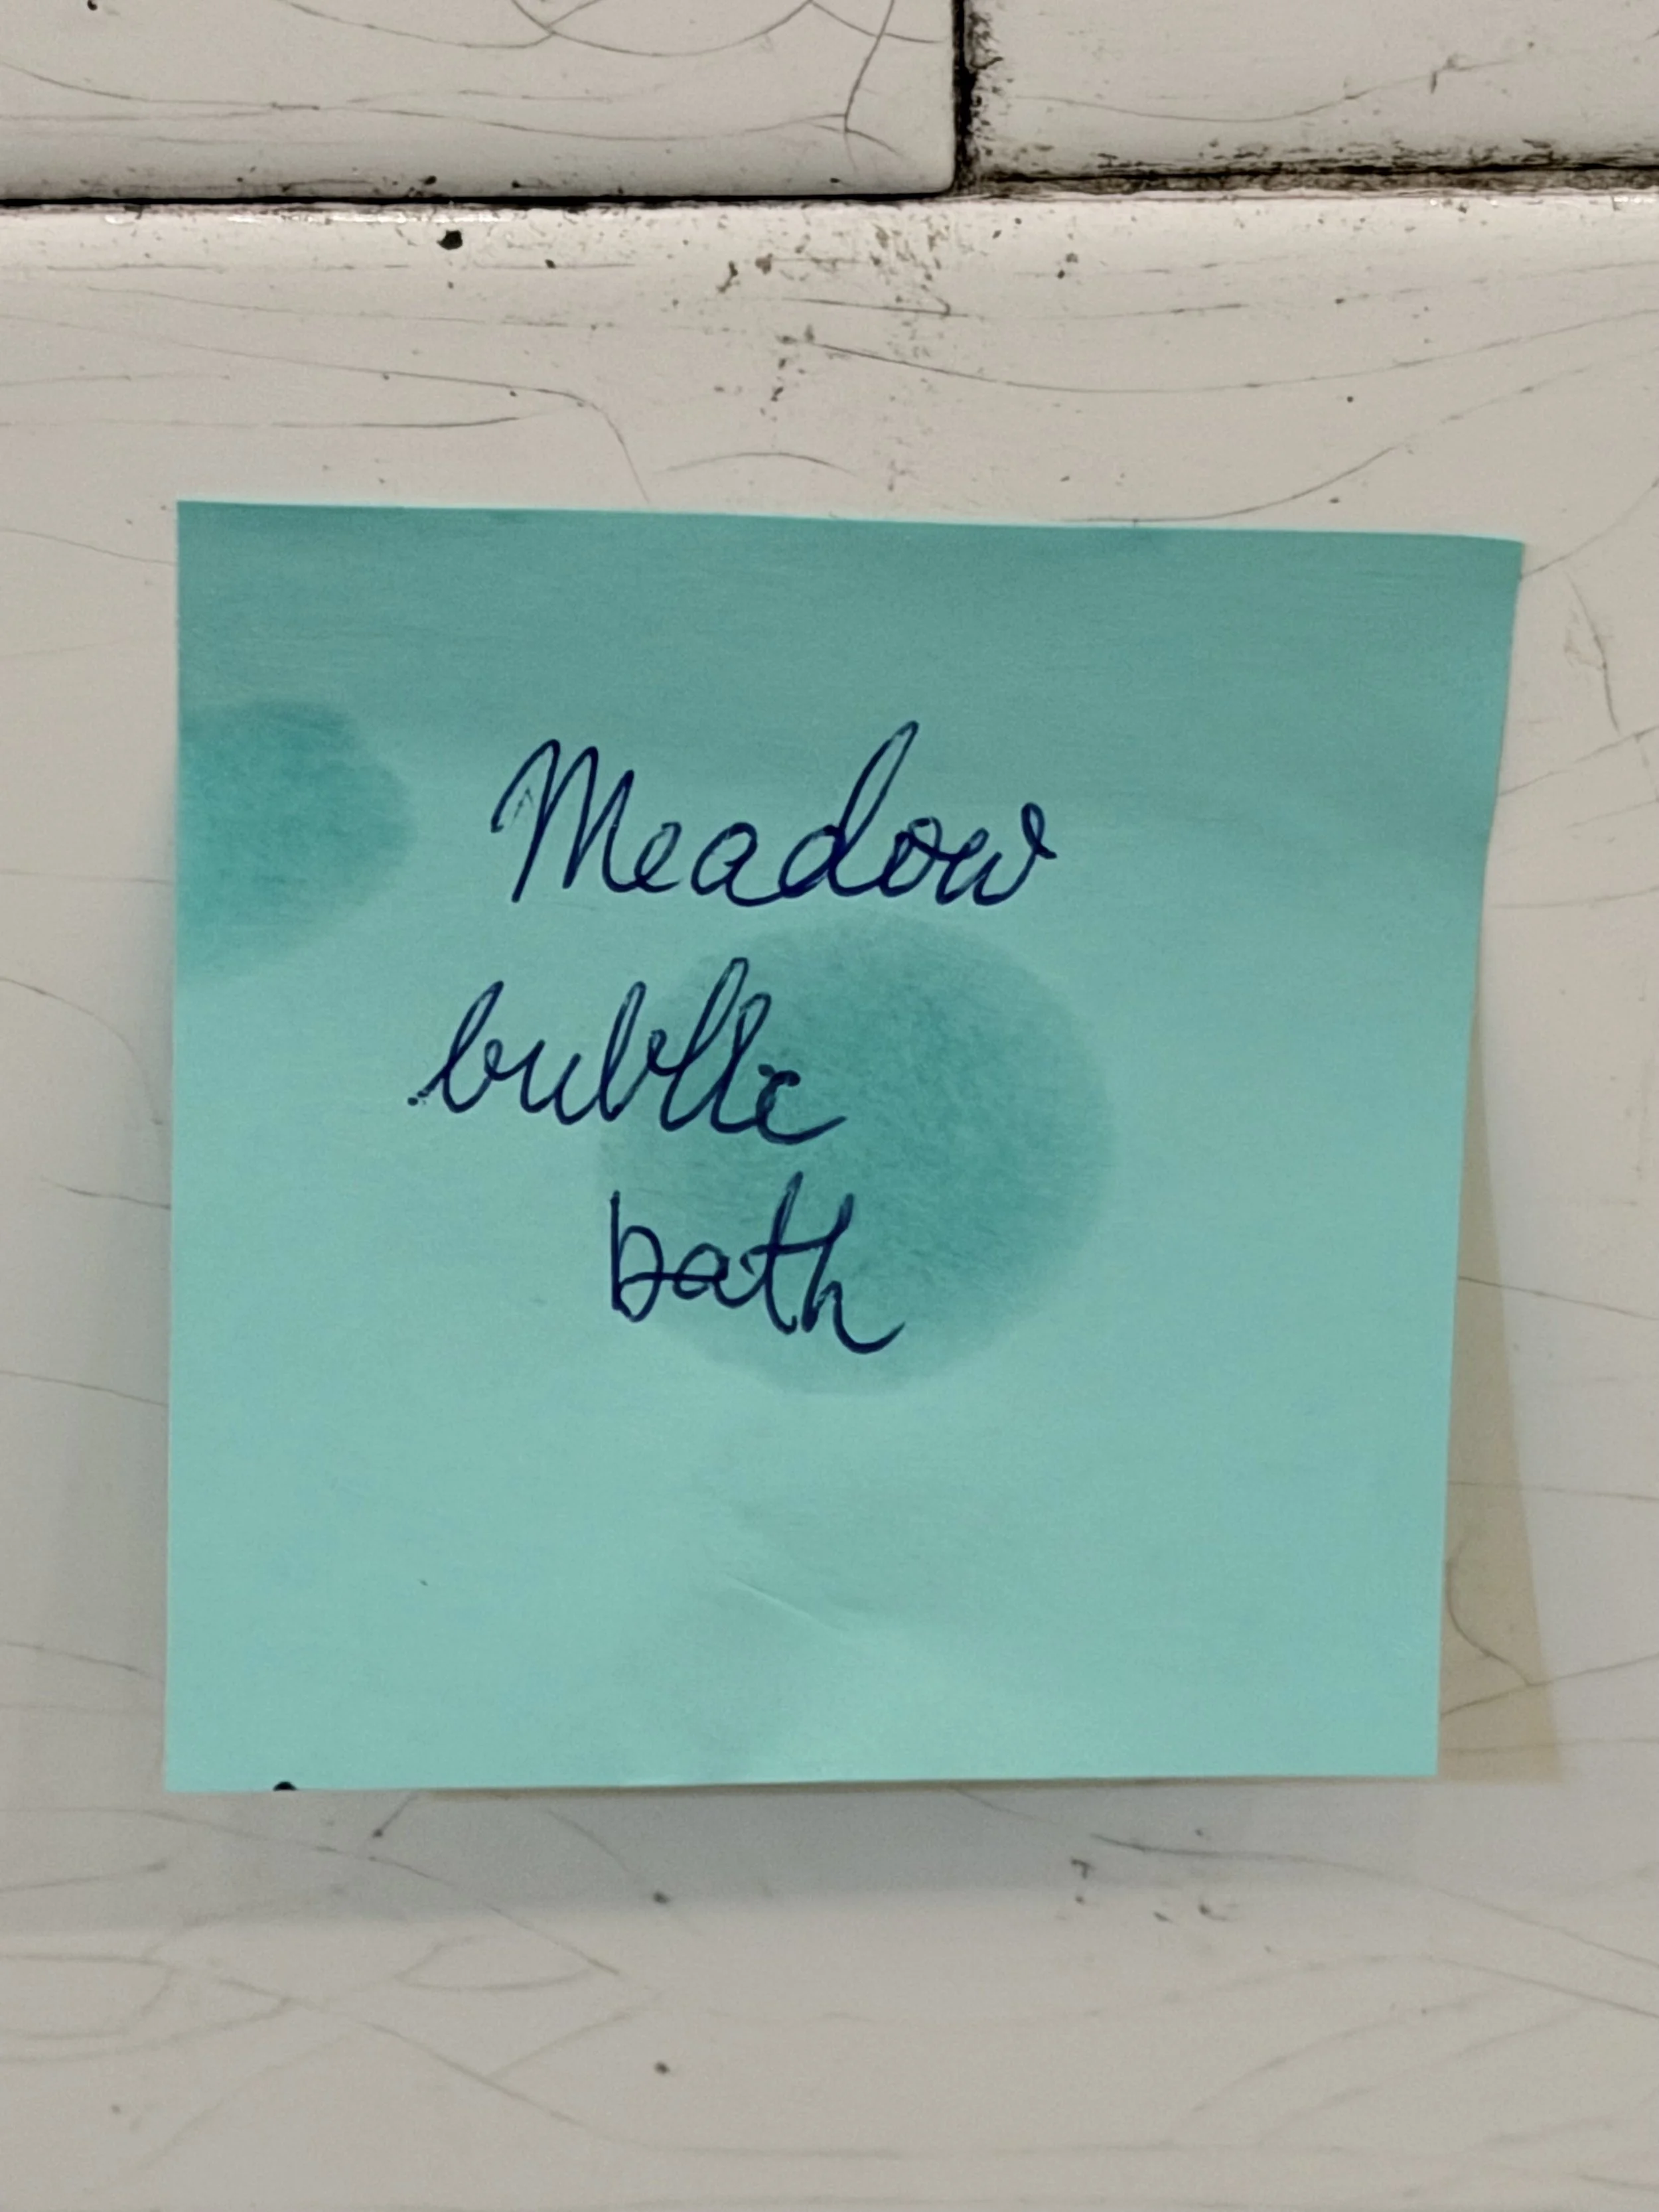 Meadow
bubble
bath